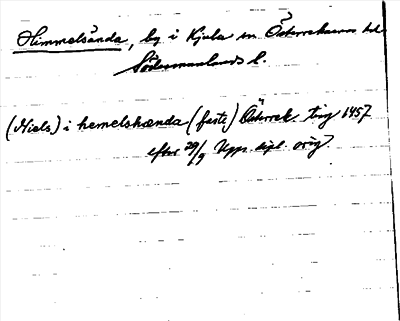 Himmelsända, by i Kjula sn Österrekarne hd
Södermanlands l.
(Niels) i hemelshænda (faste) Österrek. ting 1457
efter 29/9 Upps. dipl. orig